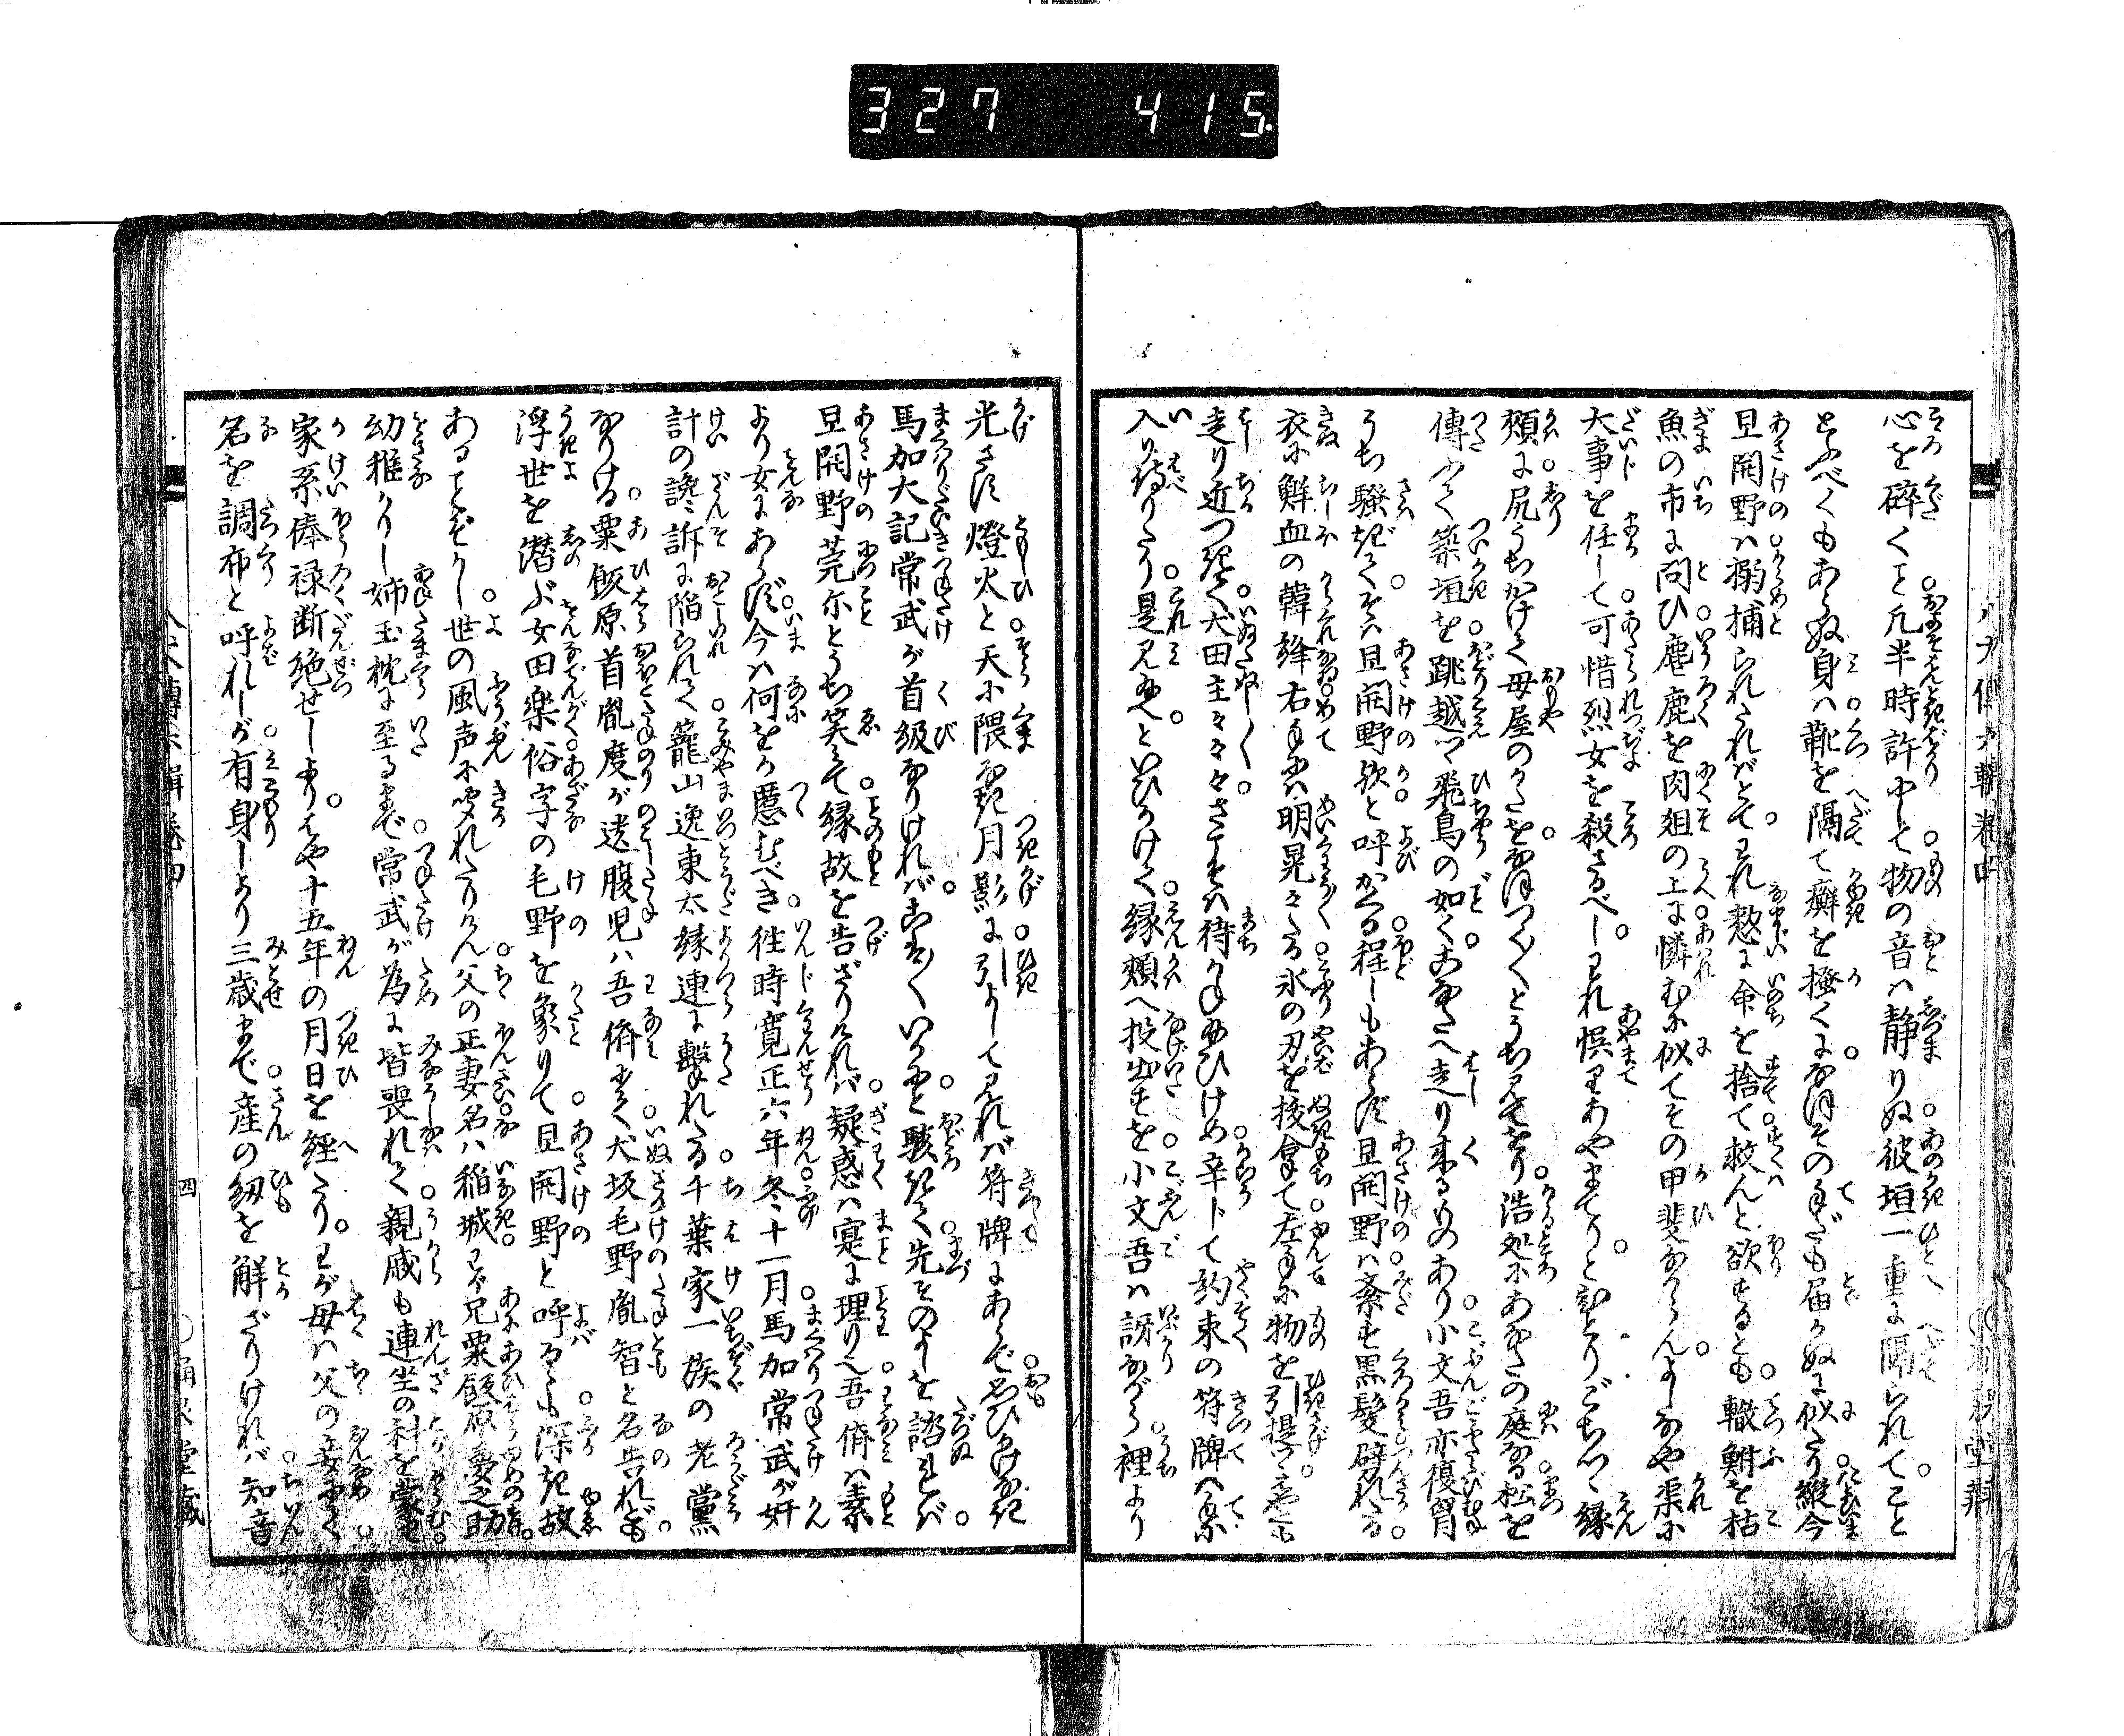 327 415
心を砕くこと凡半時許やして物の音は静りぬ彼垣一重に隔られてこと
とふべくもあらぬ身は靴を隔て癬を掻くになほその手だも届かぬに似たり縦今
旦開野は搦捕られたればとてわれ憖に命を捨て救んと欲するとも轍鮒を枯
魚の市に問ひ麀鹿を肉俎の上に憐むに似てその甲斐なからんよしなや渠に
大事を任して可惜烈女を殺さるべしわれ悞りあやまてりとひとりごちつゝ縁
頬に尻うちかけて母屋のかたをなほつく〳〵とうち見てをり浩処にあなたの庭なる松を
傳ふて築垣を跳越つ飛鳥の如くこなたへ走り来るものあり小文吾亦復胸
うち騒ぎてそは旦開野歟と呼かくる程しもあらず旦開野は紊せし黒髪釁れたる
衣に鮮血の韓絳右手には明晃々たる氷の刃を挍拿て左手に物を引提
走り近つきて犬田主々々々さこそは待かね給ひけめ辛して約束の符牌へ手に
入り侍りたり是見給へといひかけて縁頬へ投出すを小文吾は訝りながら裡より
光さす燈火と天に隈なき月影に引よして見れば符牌にあらで思ひかけなき
馬加大記常武が首級なりければこはいかにと駭きて先そのよしを諮れば
旦開野莞尓とうち笑て縁故を告ざりければ疑惑は寔に理りへ吾儕は素
より女にあらず今は何をか慝むべき徃時寛正六年冬十一月馬加常武が奸
計の讒訴に陥られて籠山逸東太縁連に撃れたる千葉家一族の老黨
なりける粟飯原首胤度が遺腹児は吾儕にて犬坂毛野胤智と名告れども
浮世を潜ぶ女田楽俗字の毛野を象りて旦開野と呼るゝも深き故
あることぞかし世の風声に聞れたりけん父の正妻名は稲城わが兄粟飯原夢之助
幼稚かりし姉玉枕に至るまで常武が為に皆喪れて親戚も連坐の科を蒙り
家系俸禄断絶せしよりはや十五年の月日を経たりわが母は父の妾にて
名を調布と呼れしが有身しより三歳まで産の紐を解ざりければ知音
四